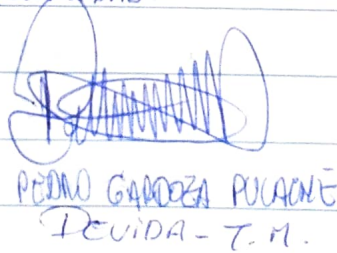 PEDRO GARDOZA PUCACHE
DEVIDA - T.M.